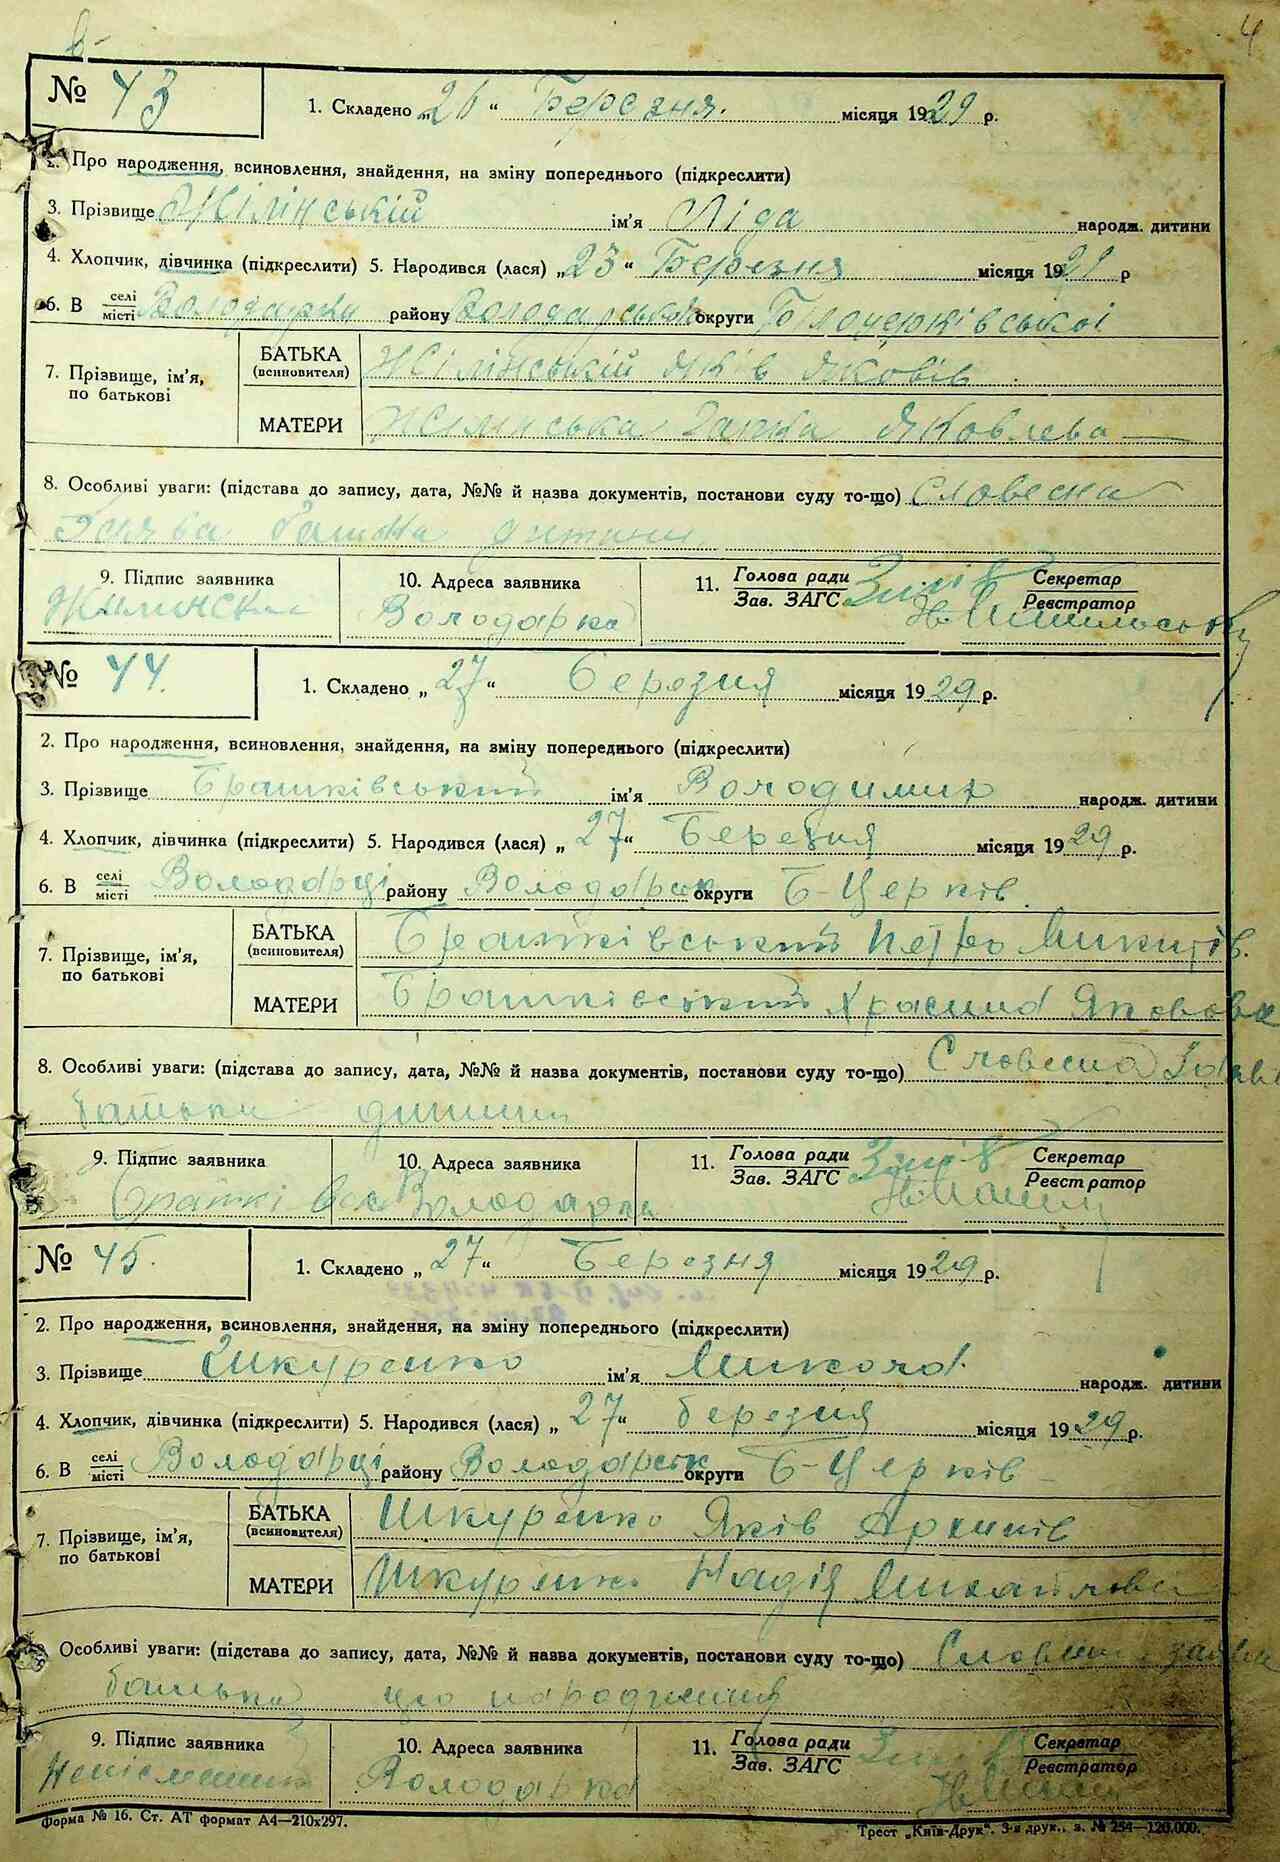 4
№ 43
1. Складено „26“ Березня. місяця 1929 р.
2. Про народження, всиновлення, знайдення, на зміну попереднього (підкреслити)
3. Прізвище Жілінській ім'я Ліда народж. дитини
4. Хлопчик, дівчинка (підкреслити) 5. Народився (лася) „23“ Березня місяця 1929 р
6. В селі/місті Володарки району Володарськ округи Білоцерківської
7. Прізвище, ім'я, по батькові
БАТЬКА (всиновителя) Жілінській Яків Яковів
МАТЕРИ Жілінська Ганна Яковлева
8. Особливі уваги: (підстава до запису, дата, №№ й назва документів, постанови суду то-що) Словесна
Заява батька дитини
9. Підпис заявника 10. Адреса заявника 11. Голова ради / Зав. ЗАГС Секретар / Реєстратор
Жилинска Володарка
№ 44.
1. Складено „27“ березня місяця 1929 р.
2. Про народження, всиновлення, знайдення, на зміну попереднього (підкреслити)
3. Прізвище Братківський ім'я Володимир народж. дитини
4. Хлопчик, дівчинка (підкреслити) 5. Народився (лася) „27“ Березня місяця 1929 р.
6. В селі/місті Володарці району Володарськ округи Б-Церків.
7. Прізвище, ім'я, по батькові
БАТЬКА (всиновителя) Братківський Петро Микитів.
МАТЕРИ Братківський Яковова
8. Особливі уваги: (підстава до запису, дата, №№ й назва документів, постанови суду то-що) Словесна Заява
батька дитини
9. Підпис заявника 10. Адреса заявника 11. Голова ради / Зав. ЗАГС Секретар / Реєстратор
Володарка
№ 45.
1. Складено „27“ Березня місяця 1929 р.
2. Про народження, всиновлення, знайдення, на зміну попереднього (підкреслити)
3. Прізвище Шкуренко ім'я Микола народж. дитини
4. Хлопчик, дівчинка (підкреслити) 5. Народився (лася) „27“ березня місяця 1929 р.
6. В селі/місті Володарці району Володарськ округи Б-Церків
7. Прізвище, ім'я, по батькові
БАТЬКА (всиновителя) Шкуренко Яків Архипів
МАТЕРИ Шкуренко Надія Михайлова
Особливі уваги: (підстава до запису, дата, №№ й назва документів, постанови суду то-що) Словесна заява
батька про народження
9. Підпис заявника 10. Адреса заявника 11. Голова ради / Зав. ЗАГС Секретар / Реєстратор
Володарка
Форма № 16. Ст. АТ формат А4—210х297.
Трест „Київ-Друк“. 3-я друк., з. № 254—120.000.